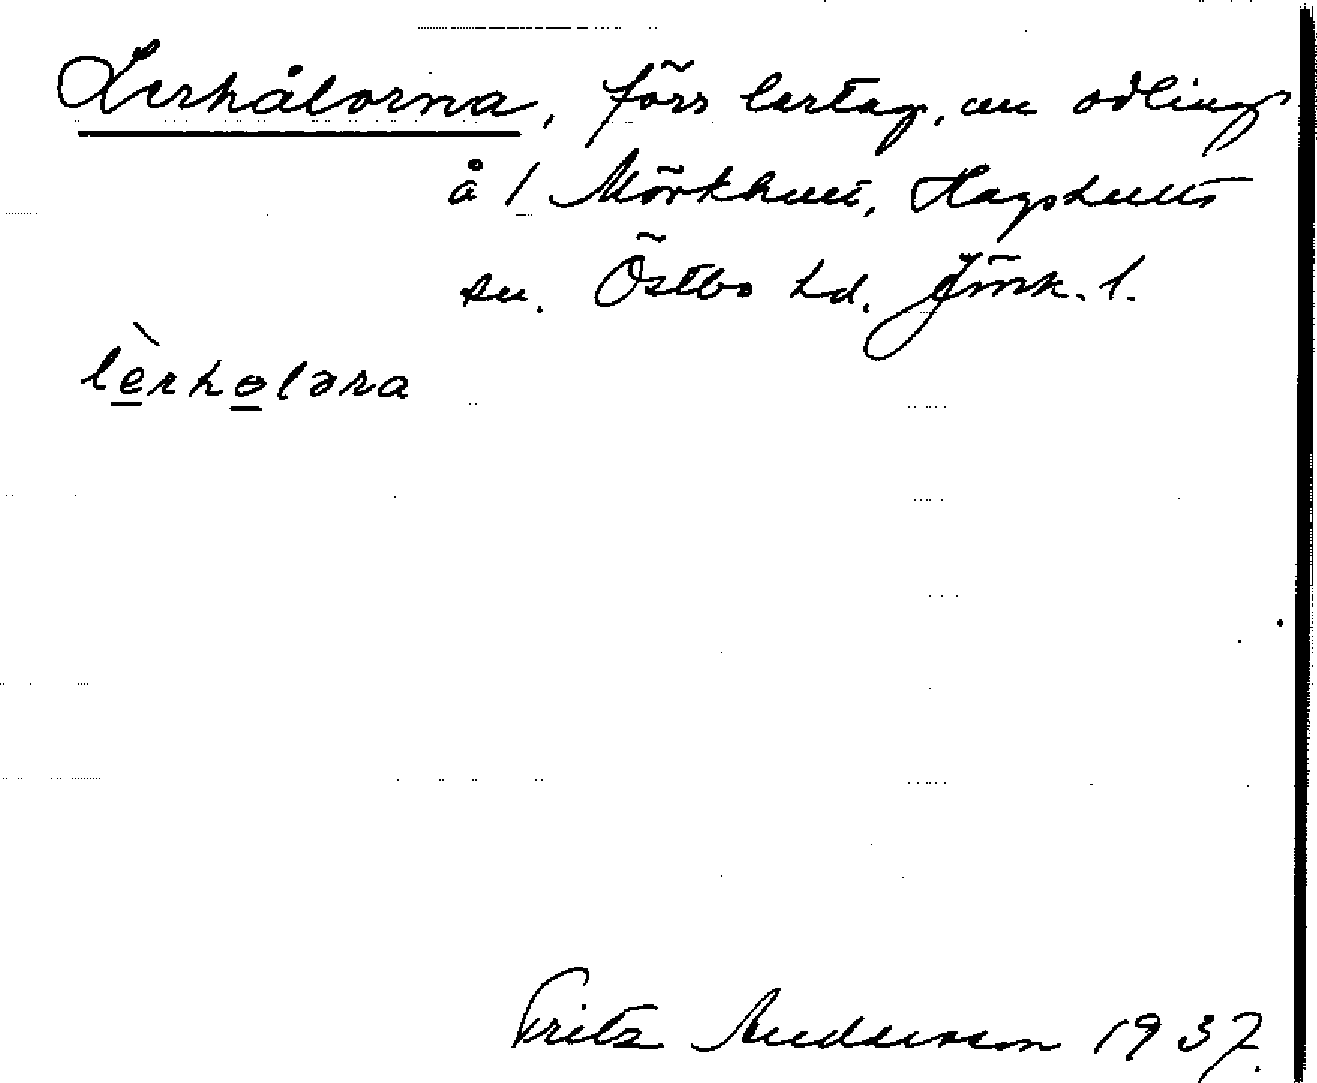 Lerhålorna, förr lertag, nu odling
å / Mörkhult, Hagshults
sn. Östbo hd. Jönk. l.
lèrholəra
Fritz Andersson 1937.